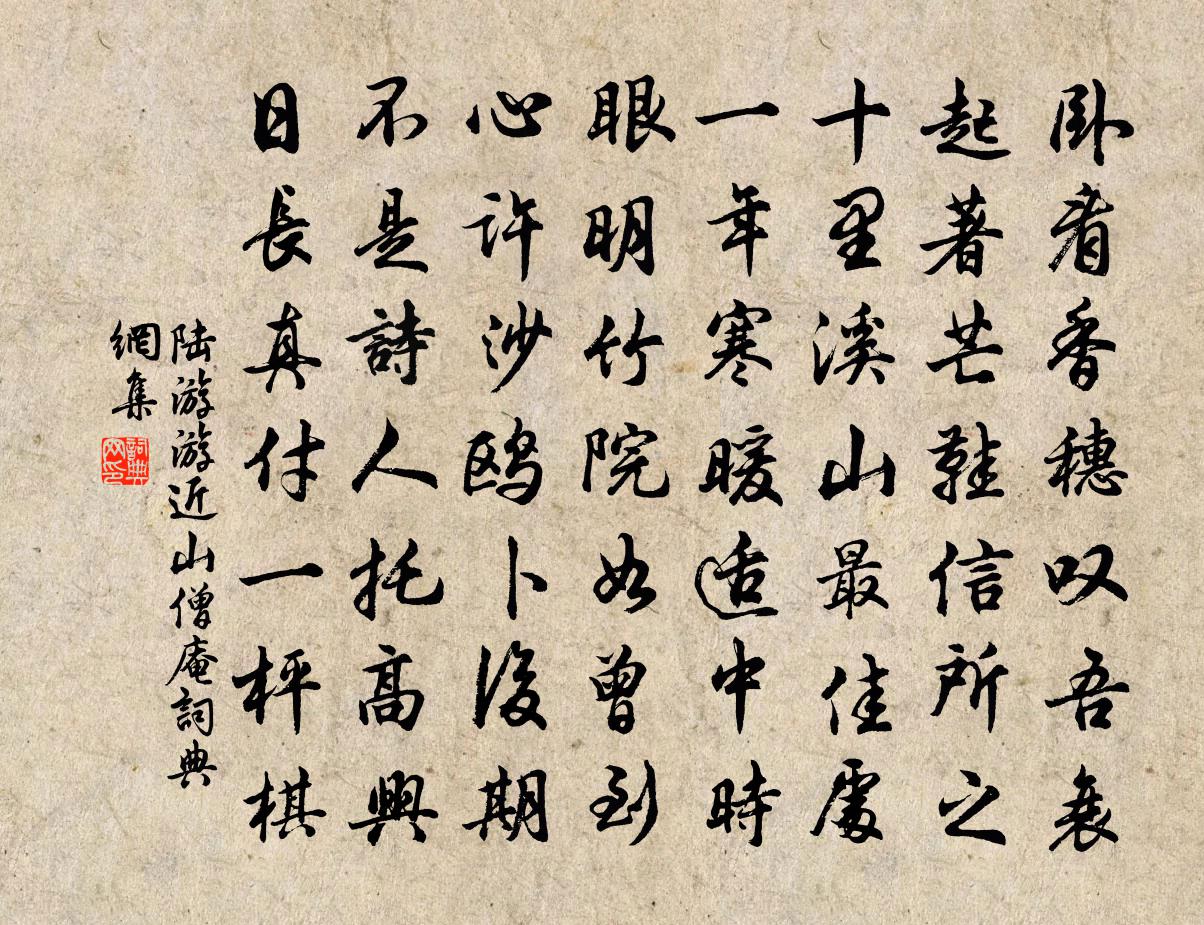 卧看香穗叹吾衰
起著芒鞋信所之
十里溪山最佳處
一年寒暖适中時
眼明竹院如曾到
心許沙鸥卜後期
不是詩人托高興
日長真付一枰棋
陆游游近山僧庵詞典
網集
詞典
网印